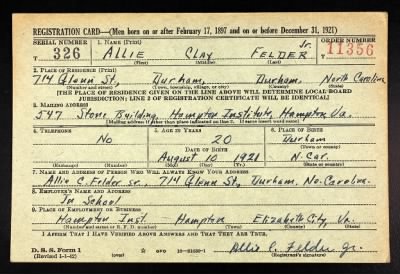 REGISTRATION CARD—(Men born on or after February 17, 1897 and on or before December 31, 1921)
SERIAL NUMBER
T 326
1. NAME (Print)
ALLIE CLAY FELDER Jr.
(First) (Middle) (Last)
ORDER NUMBER
T 11356
2. PLACE OF RESIDENCE (Print)
714 Glenn St, Durham, Durham, North Carolina
(Number and street) (Town, township, village, or city) (County) (State)
[THE PLACE OF RESIDENCE GIVEN ON THE LINE ABOVE WILL DETERMINE LOCAL BOARD
JURISDICTION; LINE 2 OF REGISTRATION CERTIFICATE WILL BE IDENTICAL]
3. MAILING ADDRESS
547 Stone Building, Hampton Institute, Hampton, Va.
[Mailing address if other than place indicated on line 2. If same insert word same]
4. TELEPHONE
No
(Exchange) (Number)
5. AGE IN YEARS
20
DATE OF BIRTH
August 10 1921
(Mo.) (Day) (Yr.)
6. PLACE OF BIRTH
Durham
(Town or county)
N. Car.
(State or country)
7. NAME AND ADDRESS OF PERSON WHO WILL ALWAYS KNOW YOUR ADDRESS
Allie C. Felder Sr., 714 Glenn St, Durham, No. Carolina.
8. EMPLOYER'S NAME AND ADDRESS
In School
9. PLACE OF EMPLOYMENT OR BUSINESS
Hampton Inst. Hampton Elizabeth City, Va.
(Number and street or R. F. D. number) (Town) (County) (State)
I AFFIRM THAT I HAVE VERIFIED ABOVE ANSWERS AND THAT THEY ARE TRUE.
D. S. S. Form 1
(Revised 1-1-42) (over)
Allie C. Felder Jr.
(Registrant's signature)